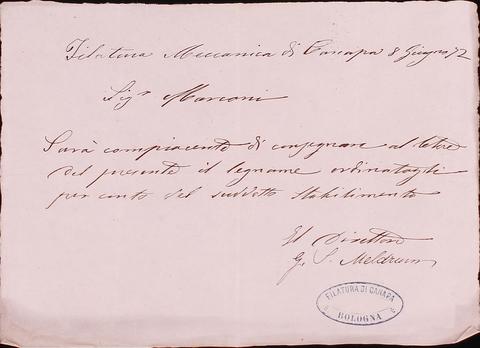 Filatura Meccanica di Canapa 8 Giugno 72
Sigr Marconi
Sarà compiacente di consegnare al latore
del presente il legname ordinatogli
per conto del suddetto Stabilimento
Il Direttore
G. S. Meldrum
FILATURA DI CANAPA
BOLOGNA